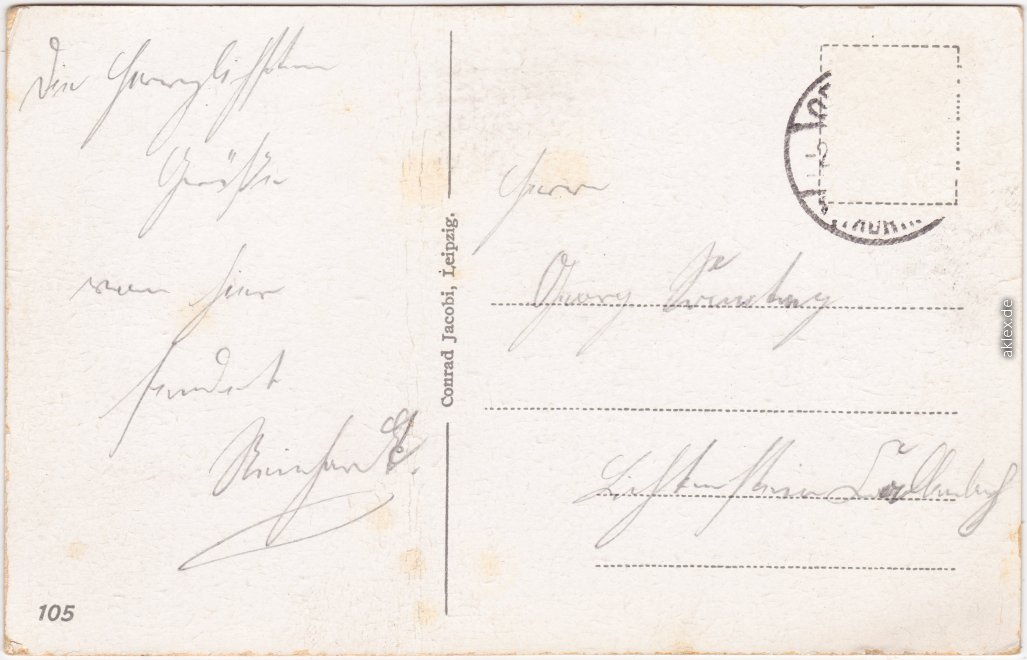 Die herzlichsten
Grüße
von hier
sendet
Reinhardt
Conrad Jacobi, Leipzig.
105
Herrn
Georg
Lichtenstein
aklex.de